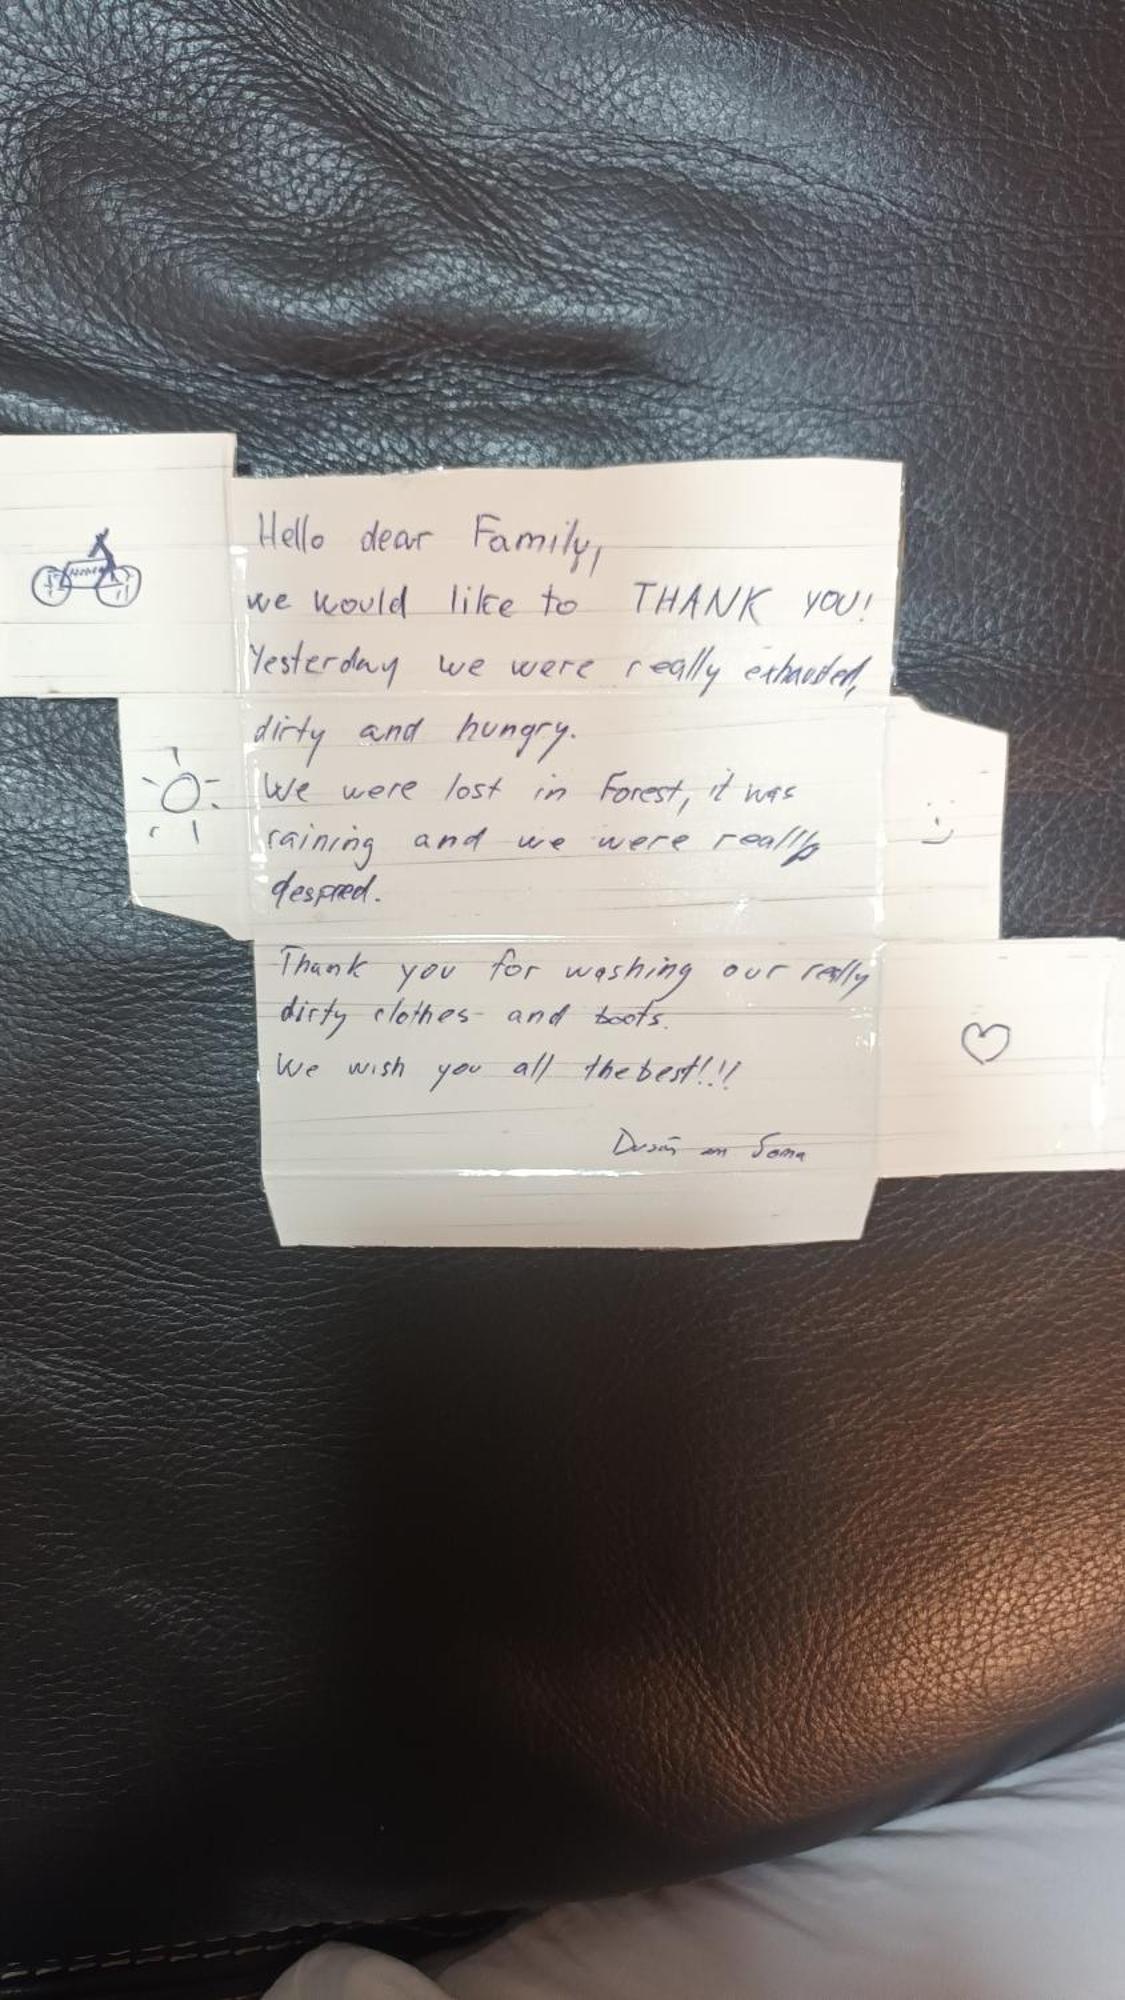 Hello dear Family,
we would like to THANK YOU!
Yesterday we were really exhausted,
dirty and hungry.
We were lost in Forest, it was
raining and we were really
despred.
Thank you for washing our really
dirty clothes and boots.
We wish you all the best!!!